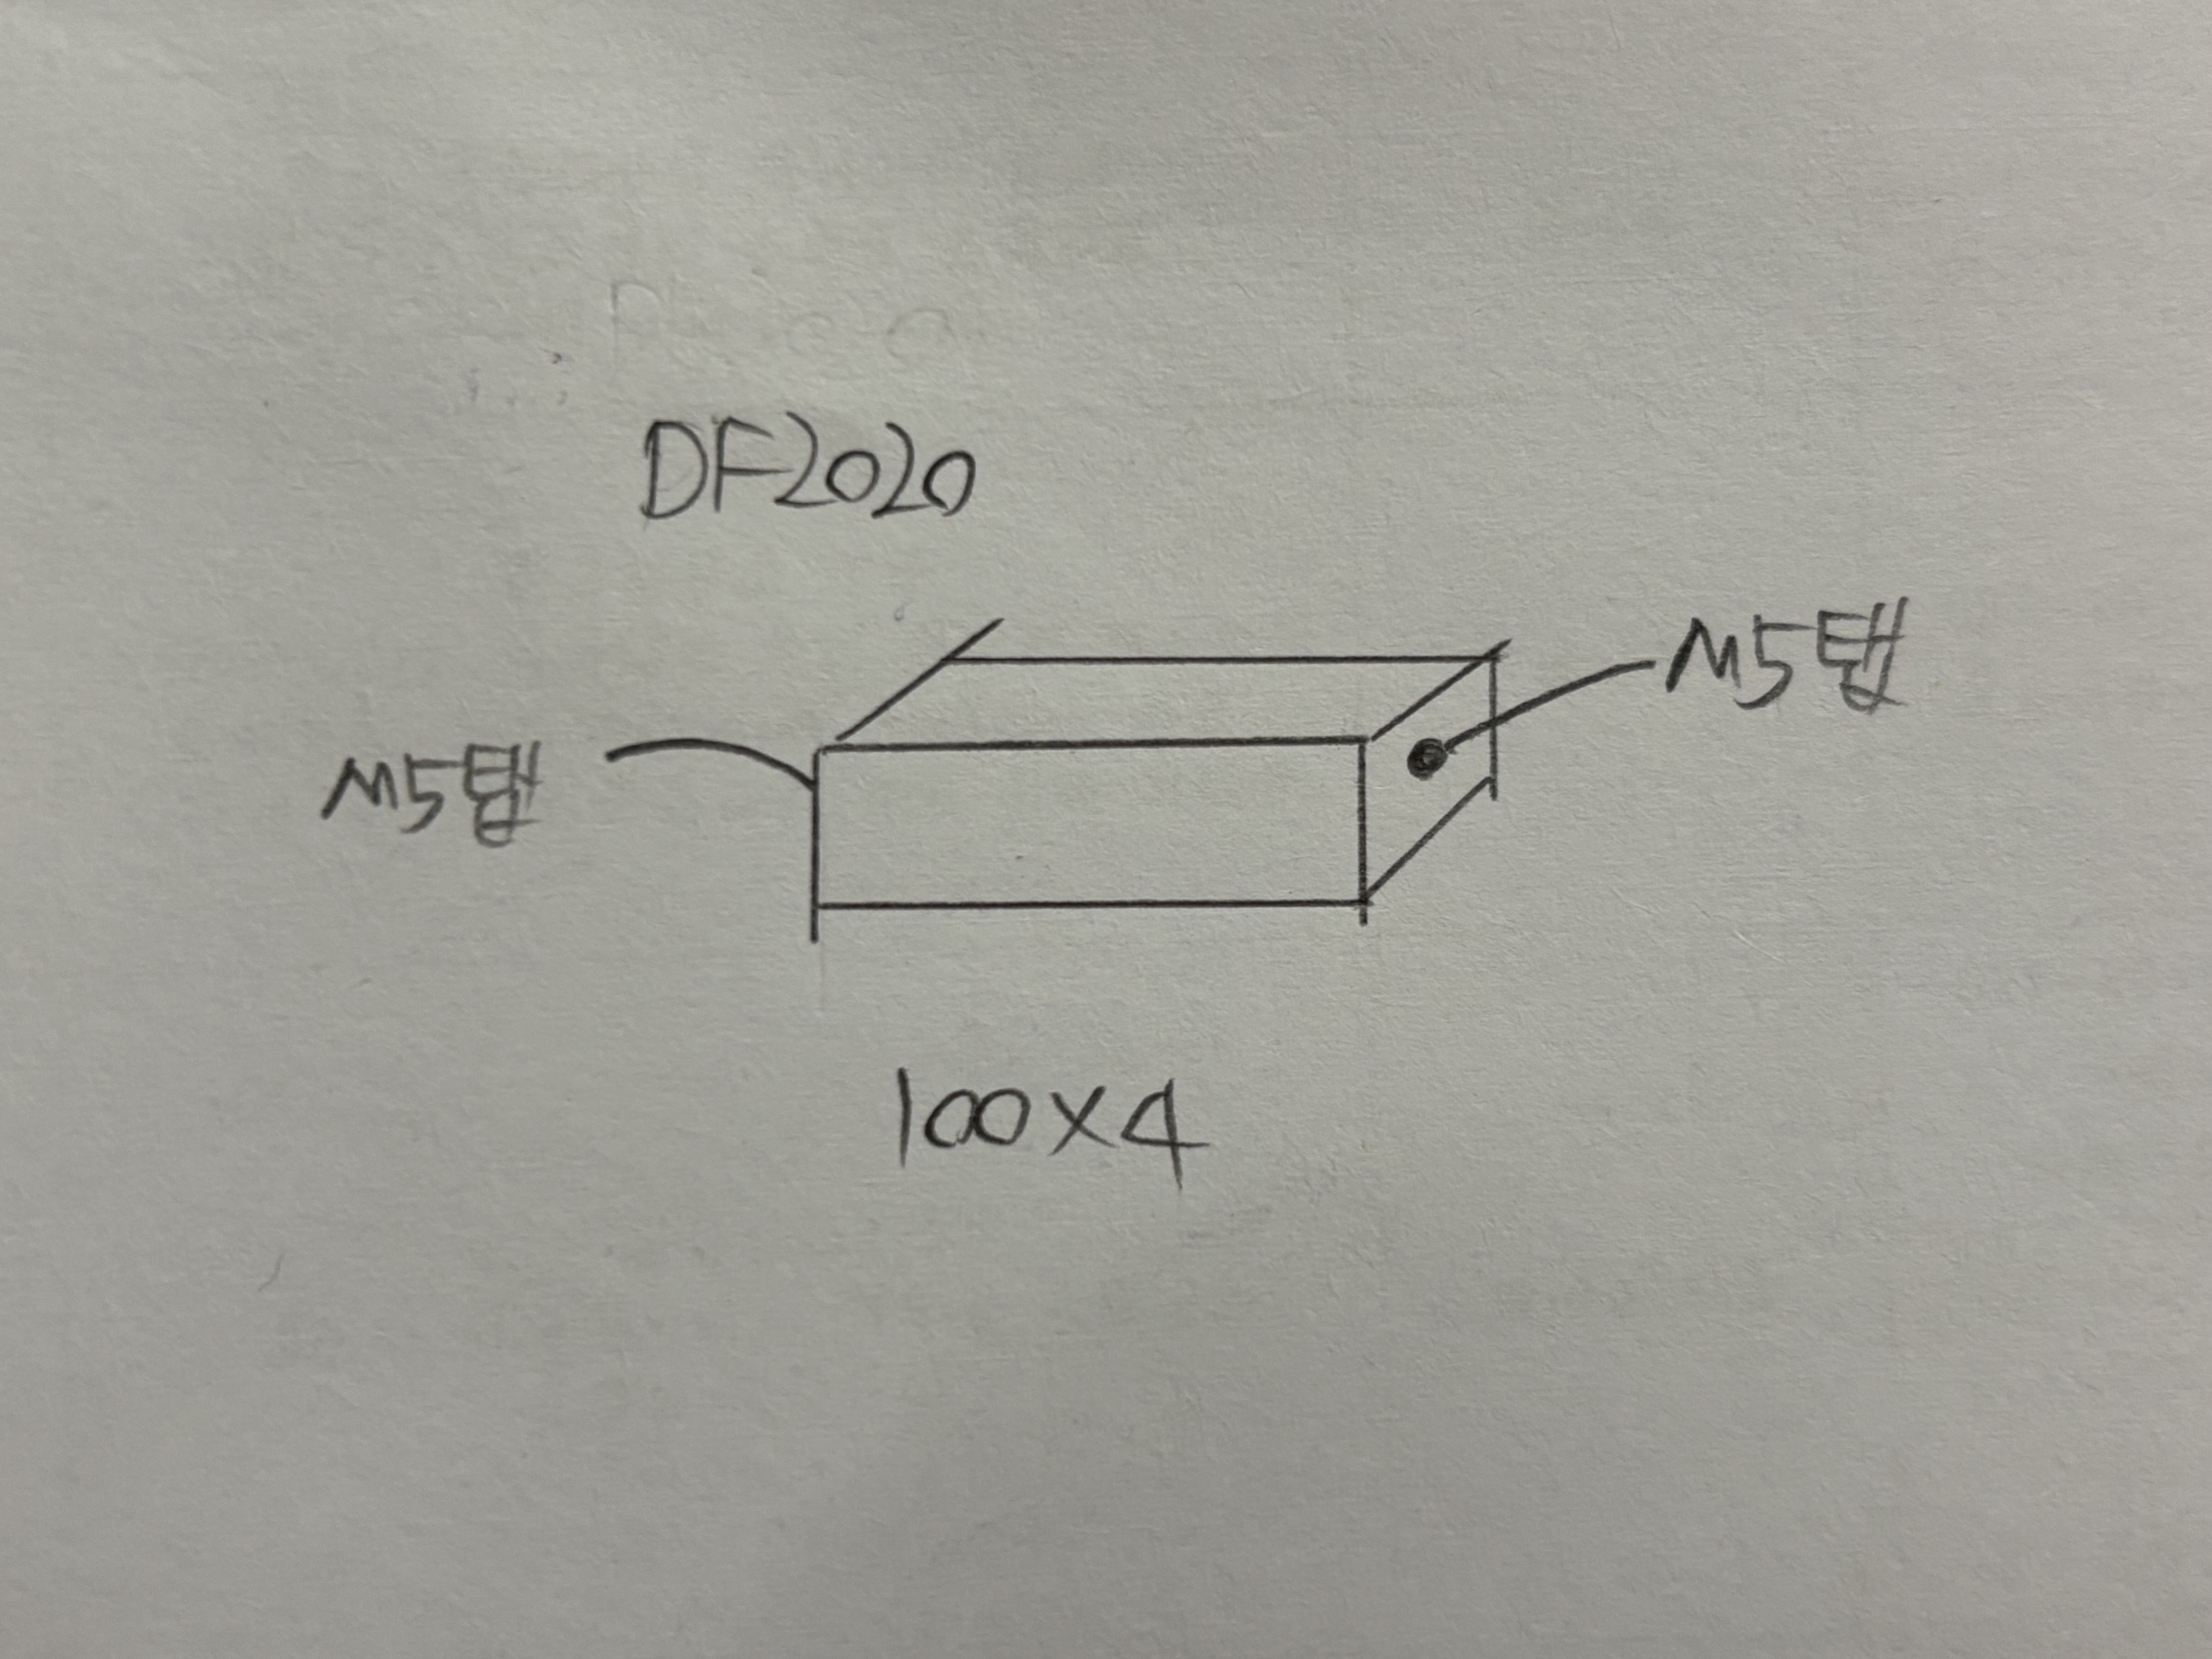 DF2020
M5탭
M5탭
100x4